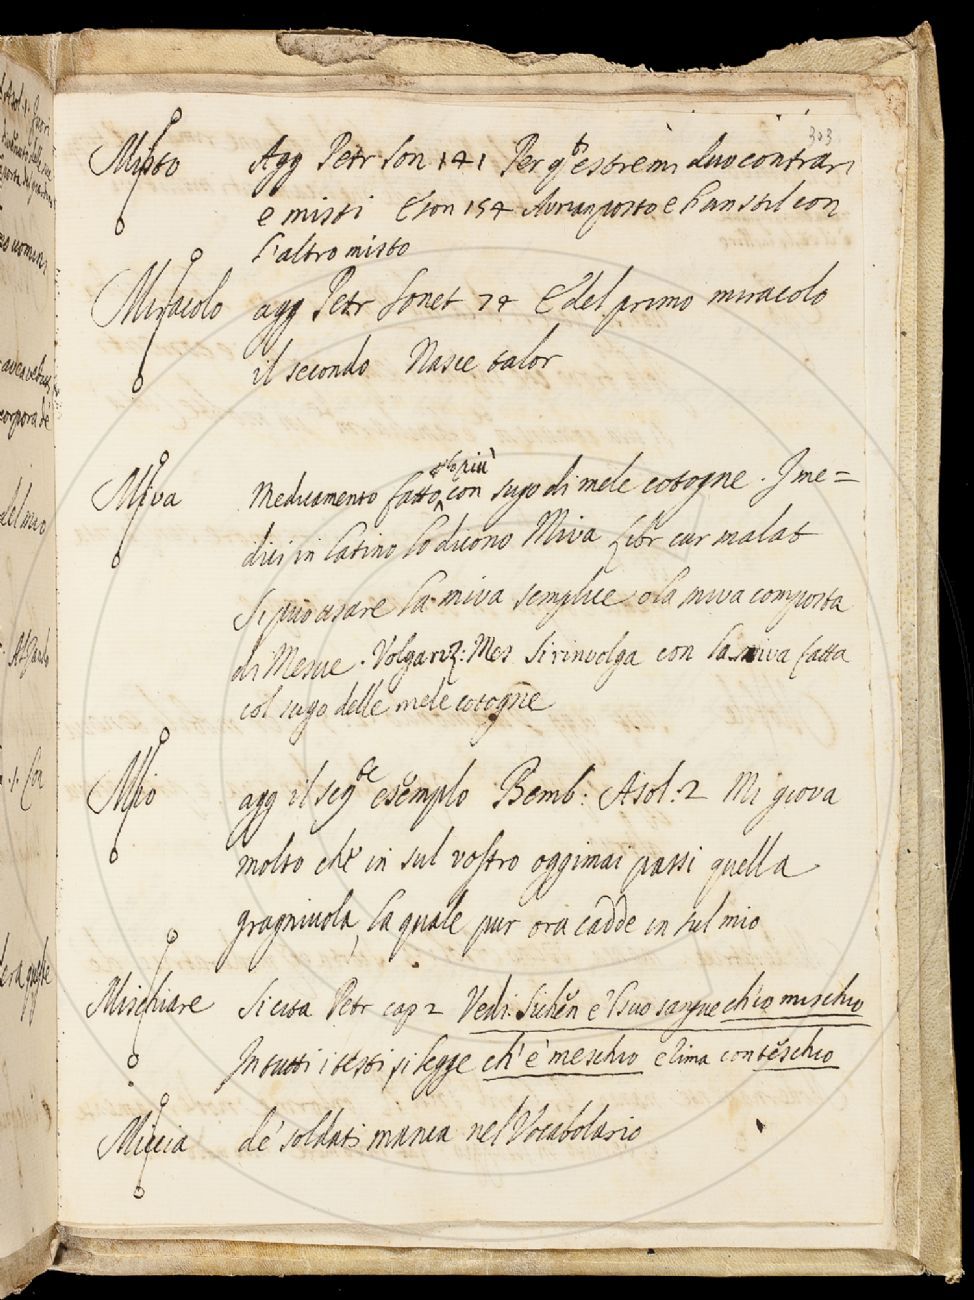 303
Misto Agg Petr Son 141 Per q.ti estremi duo contrari
e misti E son 154 Aurian posto e l'un stil con
l'altro misto
Miracolo agg Petr Sonet 74 E del primo miracolo
il secondo Nasce talor
Miva Medicamento fatto più con sugo di mele cotogne. I me=
dici in latino lo dicono Miva Libr cur malat
Si può usare la miva semplice o la miva composta
di Mesue. Volgariz: Mes Si rinvolga con la miva fatta
col sugo delle mele cotogne
Mio agg il seg.de esempio Bemb: Asol: 2 Mi giova
molto che in sul vostro oggimai passi quella
gragniuola, la quale pur ora cadde in sul mio
Mischiare Si cita Petr cap 2 Vedi Sichen e 'l suo sangue ch'io mischio
In tutti i testi si legge ch'è meschio e rima con teschio
Miccia de' soldati manca nel Vocabolario